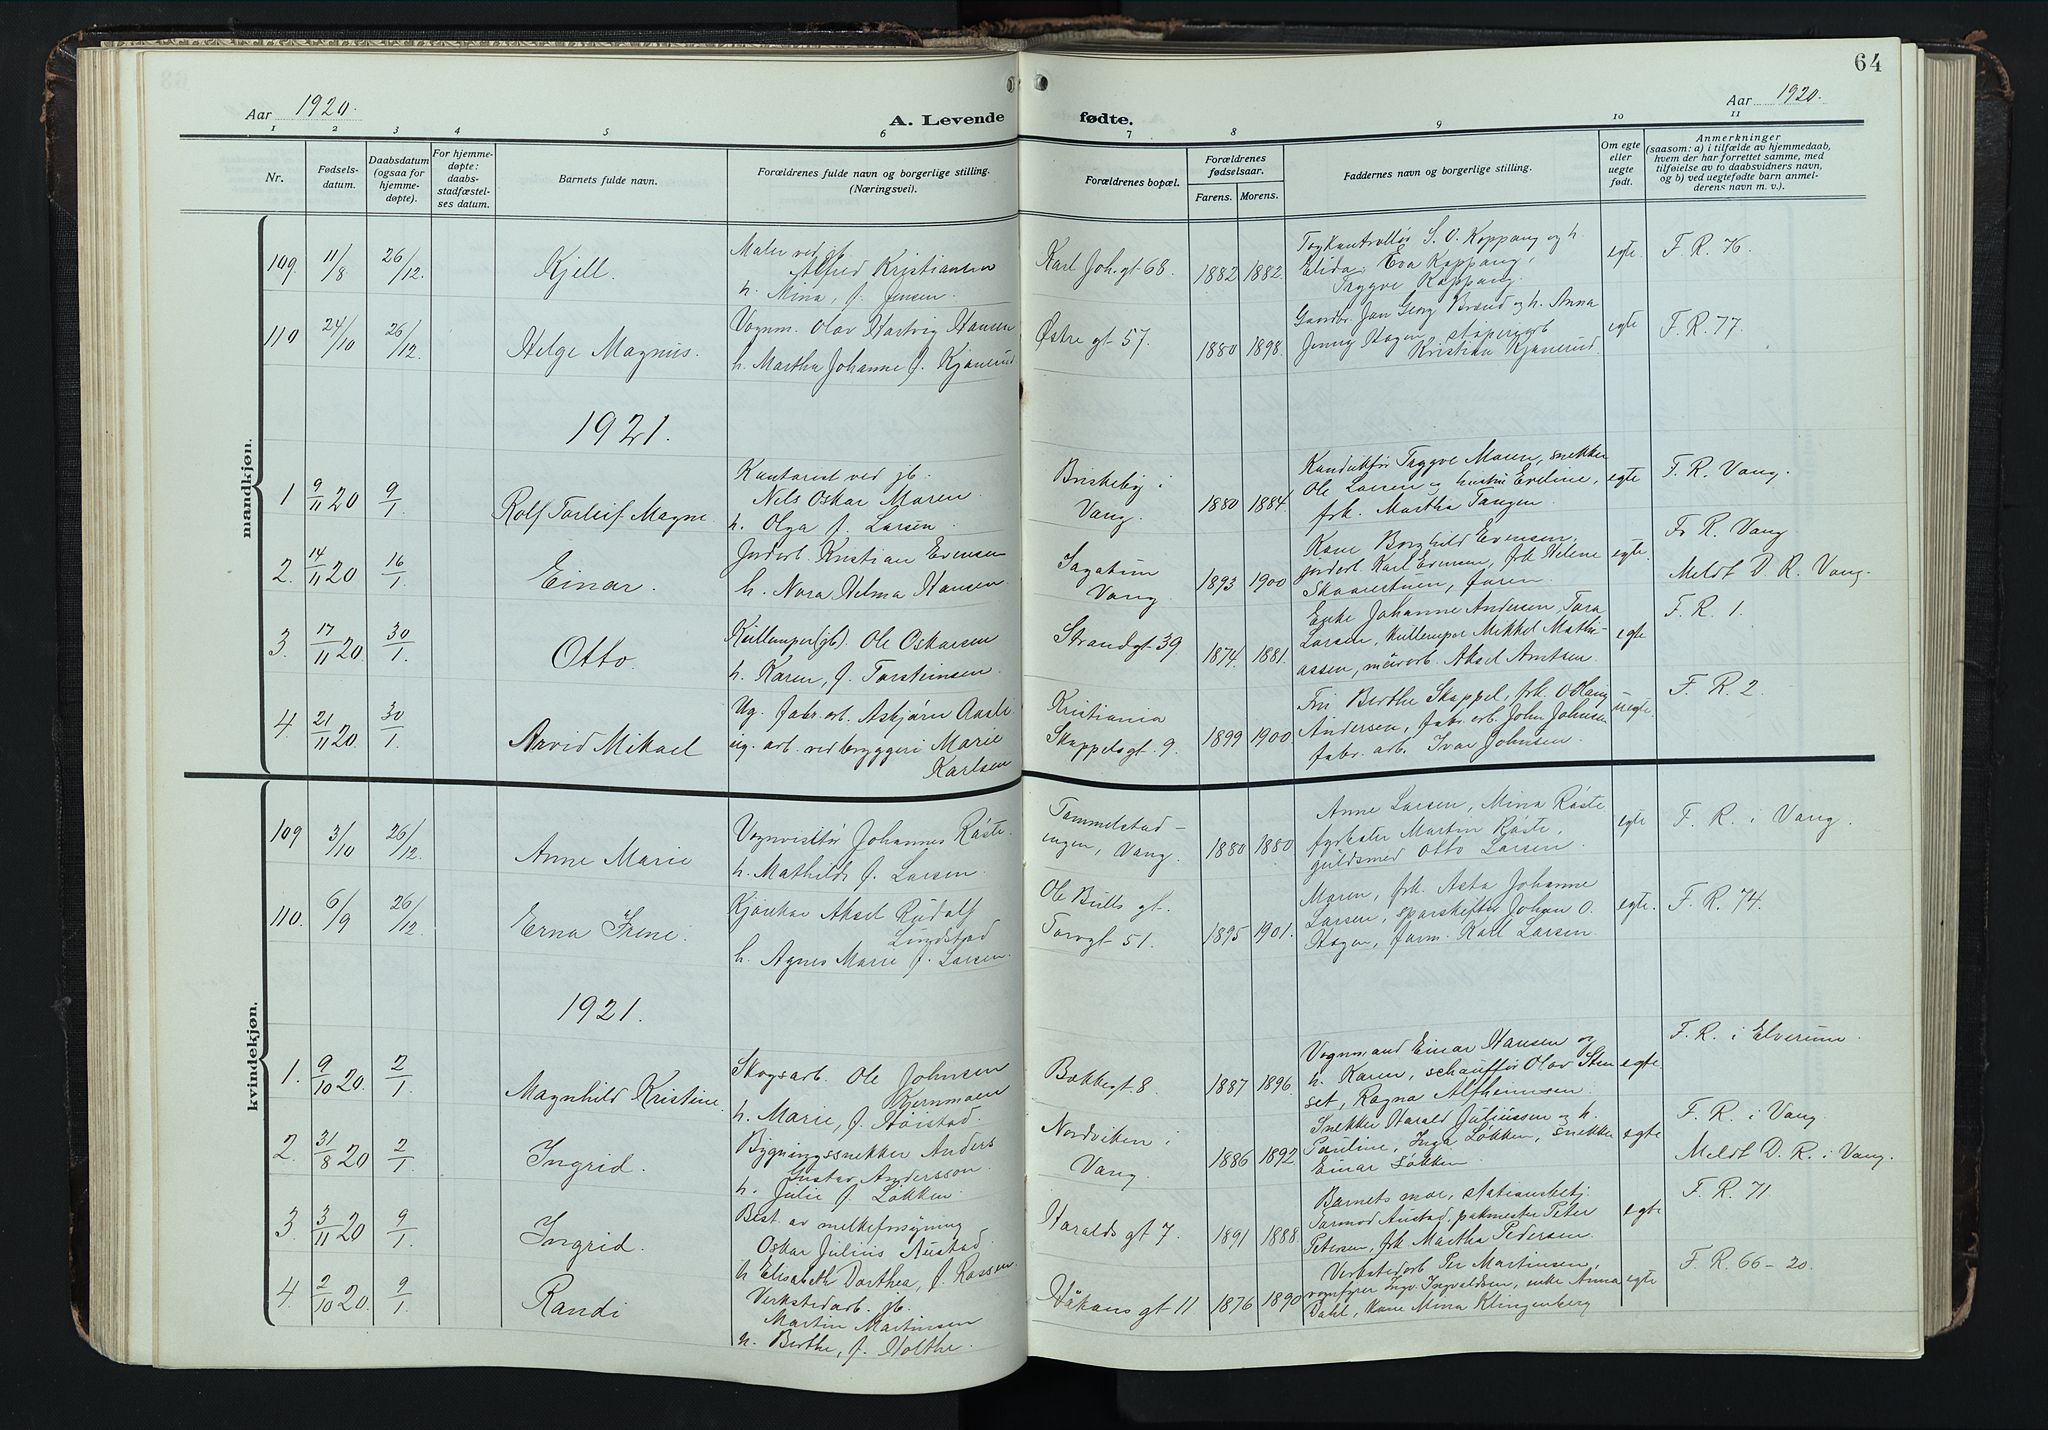 64
Aar 1920.
A. Levende fødte.
Aar 1920.
1 2 3 4 5 6 7 8 9 10 11
Nr.
Fødsels-
datum.
Daabsdatum
(ogsaa for
hjemme-
døpte).
For hjemme-
døpte:
daabs-
stadfæstel-
ses datum.
Barnets fulde navn.
Forældrenes fulde navn og borgerlige stilling.
(Næringsvei).
Forældrenes bopæl.
Forældrenes
fødselsaar.
Farens. Morens.
Faddernes navn og borgerlige stilling.
Om egte
eller
uegte
født.
Anmerkninger
(saasom: a) i tilfælde av hjemmedaab,
hvem der har forrettet samme, med
tilføielse av to daabsvidners navn,
og b) ved uegtefødte barn anmel-
derens navn m. v.).
mandkjøn.
109 11/8 26/12. Kjell.
Maler ved jb.
Alfred Kristiansen
h. Mina, f. Jensen.
Karl Joh. gt 68. 1882 1882.
Togkontrollør S. O. Koppang og h.
Elida, Eva Koppang,
Trygve Koppang.
egte. F. R. 76
110 24/10 26/12. Helge Magnus.
Vognm. Olav Hartvig Hansen
h. Martha Johanne f. Kjønerud
Østre gt 57. 1880 1898.
Gaardbr. Jan Georg Brænd og h. Anna
Jenny Hagen, støperiarb
Kristian Kjønerud.
egte F. R. 77.
1921.
1 9/11 20 9/1 Rolf Torleif Magne
Kontorist ved jb.
Nils Oskar Moren
h. Olga f. Larsen.
Briskeby i
Vang. 1880 1884.
Konduktør Trygve Moren, snekker
Ole Larsen og hustru Eveline,
frk. Martha Tangen
egte F. R. Vang.
2. 14/11 20 16/1 Einar.
Jordarb. Kristian Evensen
h. Nora Helma Hansen
Sagatun
Vang. 1893 1900
Kone Borghild Evensen,
jordarb Karl Evensen, frk Helene
Skaarestuen, faren.
egte. F. R. Vang
Meldt D. R. Vang.
3. 17/11 20. 30/1 Otto.
Kullemper (jb). Ole Oskarsen
h. Karen, f. Torsteinsen.
Strandgt 39. 1874. 1881.
Enke Johanne Andersen, Tora
Larsen, kullemper Mikkel Mathi-
assen, murarb. Aksel Amtsen.
egte F. R. 1.
4. 21/11 20. 30/1. Arvid Mikael
Ug. fabr. arb. Asbjørn Aasli
ug. arb. ved bryggeri Marie
Karlsen
Kristiania
Skappelsgt. 9. 1899 1900.
Fru Berthe Skappel, frk. Olaug
Andersen, fabr arb. John Johnsen
fabr. arb. Ivar Johnsen.
uegte. F. R. 2.
kvindekjøn.
109 3/10 26/12. Anne Marie
Vognvisitør Johannes Røste.
h. Mathilde f. Larsen.
Tommelstad-
engen, Vang. 1880 1880
Anne Larsen, Mina Røste
fyrbøter Martin Røste,
guldsmed Otto Larsen.
egte F. R. i Vang.
110. 6/9 26/12. Erna Irene.
Kjørekar Aksel Rudolf
Lundstad
h. Agnes Marie f. Larsen.
Ole Bulls gt.
Torvgt 51. 1895 1901.
Moren, frk. Asta Johanne
Larsen, sporskifter Johan O.
Hagen, form. Karl Larsen.
egte. F. R. 74.
1921.
1. 9/10 20. 2/1 Magnhild Kristine.
Skogsarb. Ole Johnsen
Kjernmoen
h. Marie, f. Høistad.
Bækkegt 8. 1887 1896.
Vognmand Einar Hansen og
h. Karen, schauffør Olav Sten
set, Ragna Alfheimsen.
egte. F. R. i Elverum.
2. 31/8 20 2/1 Ingrid.
Bygningssnekker Anders
Gustav Andersson.
h. Julie f. Løkken.
Nordviken i
Vang. 1886 1892
Snekker Harald Juliussen og h.
Pauline, Inga Løkken, snekker
Einar Løkken.
egte F. R. i Vang.
Meldt D. R. i Vang.
3. 3/11 20 9/1 Ingrid.
Best. av melkeforsyning
Oskar Julius Austad
h Elisabeth Dorthea, f. Rossen.
Haralds gt 7. 1891 1888.
Barnets mor, stationsbetj.
Tormod Austad, pakmester Peter
Petersen, frk Martha Pedersen
egte F. R. 71.
4. 2/10 20. 9/1 Randi
Verkstedarb. jb.
Martin Martinsen
h. Berthe, f. Holthe.
Håkons gt 11 1876 1890
Verkstedarb Per Martinsen,
vognfyrer Ingv. Ingvaldsen, enke Anna
Dahl, kone Mina Klingenberg
egte F. R. 66-20.